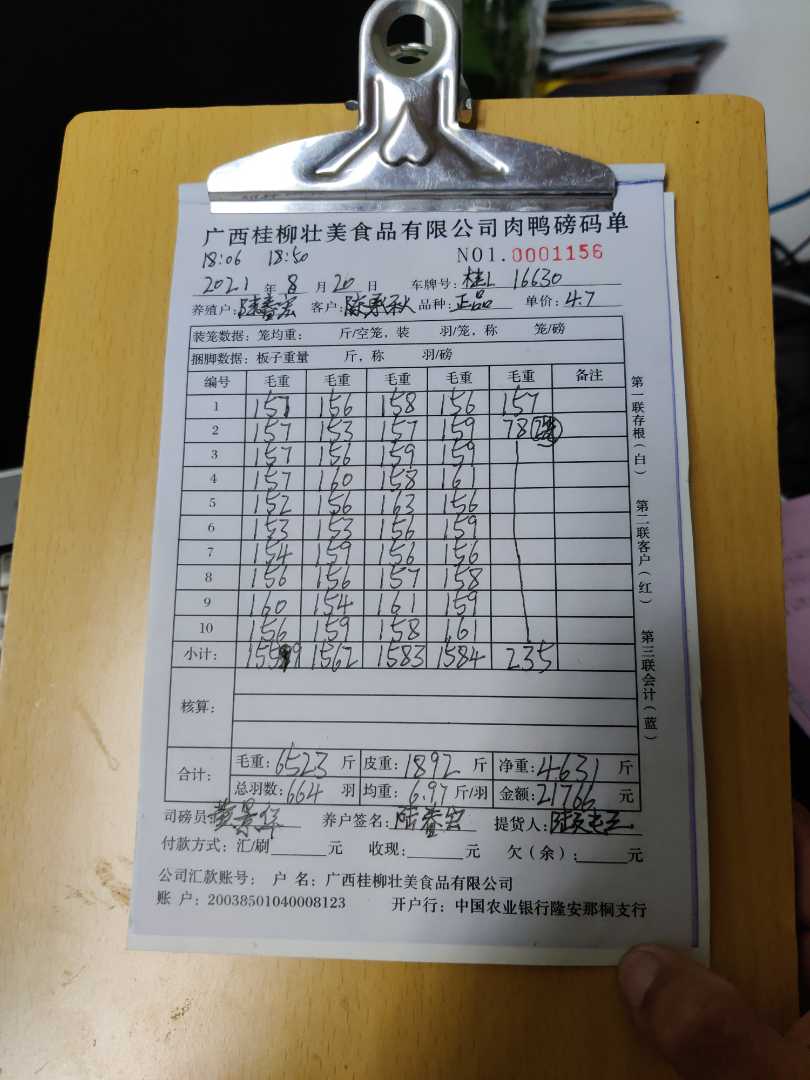 广西桂柳壮美食品有限公司肉鸭磅码单
18:06 18:50 NO1.0001156
2021 年 8 月 20 日 车牌号: 桂L 16630
养殖户: 客户: 品种: 正品 单价: 4.7
装笼数据: 笼均重: 斤/空笼, 装 羽/笼, 称 笼/磅
捆脚数据: 板子重量 斤, 称 羽/磅
编号 毛重 毛重 毛重 毛重 毛重 备注
1 157 156 158 156 157
2 157 153 157 159 78
3 157 156 159 159
4 157 160 158 161
5 152 156 163 156
6 153 153 156 159
7 154 159 156 156
8 156 156 157 158
9 160 154 161 159
10 156 159 158 161
小计: 1559 1562 1583 1584 235
核算:
合计: 毛重: 6523 斤 皮重: 1892 斤 净重: 4631 斤
总羽数: 664 羽 均重: 6.97 斤/羽 金额: 21766 元
司磅员: 养户签名: 提货人:
付款方式: 汇/刷 元 收现: 元 欠(余): 元
公司汇款账号: 户 名: 广西桂柳壮美食品有限公司
账 户: 20038501040008123 开户行: 中国农业银行隆安那桐支行
第一联存根(白)
第二联客户(红)
第三联会计(蓝)